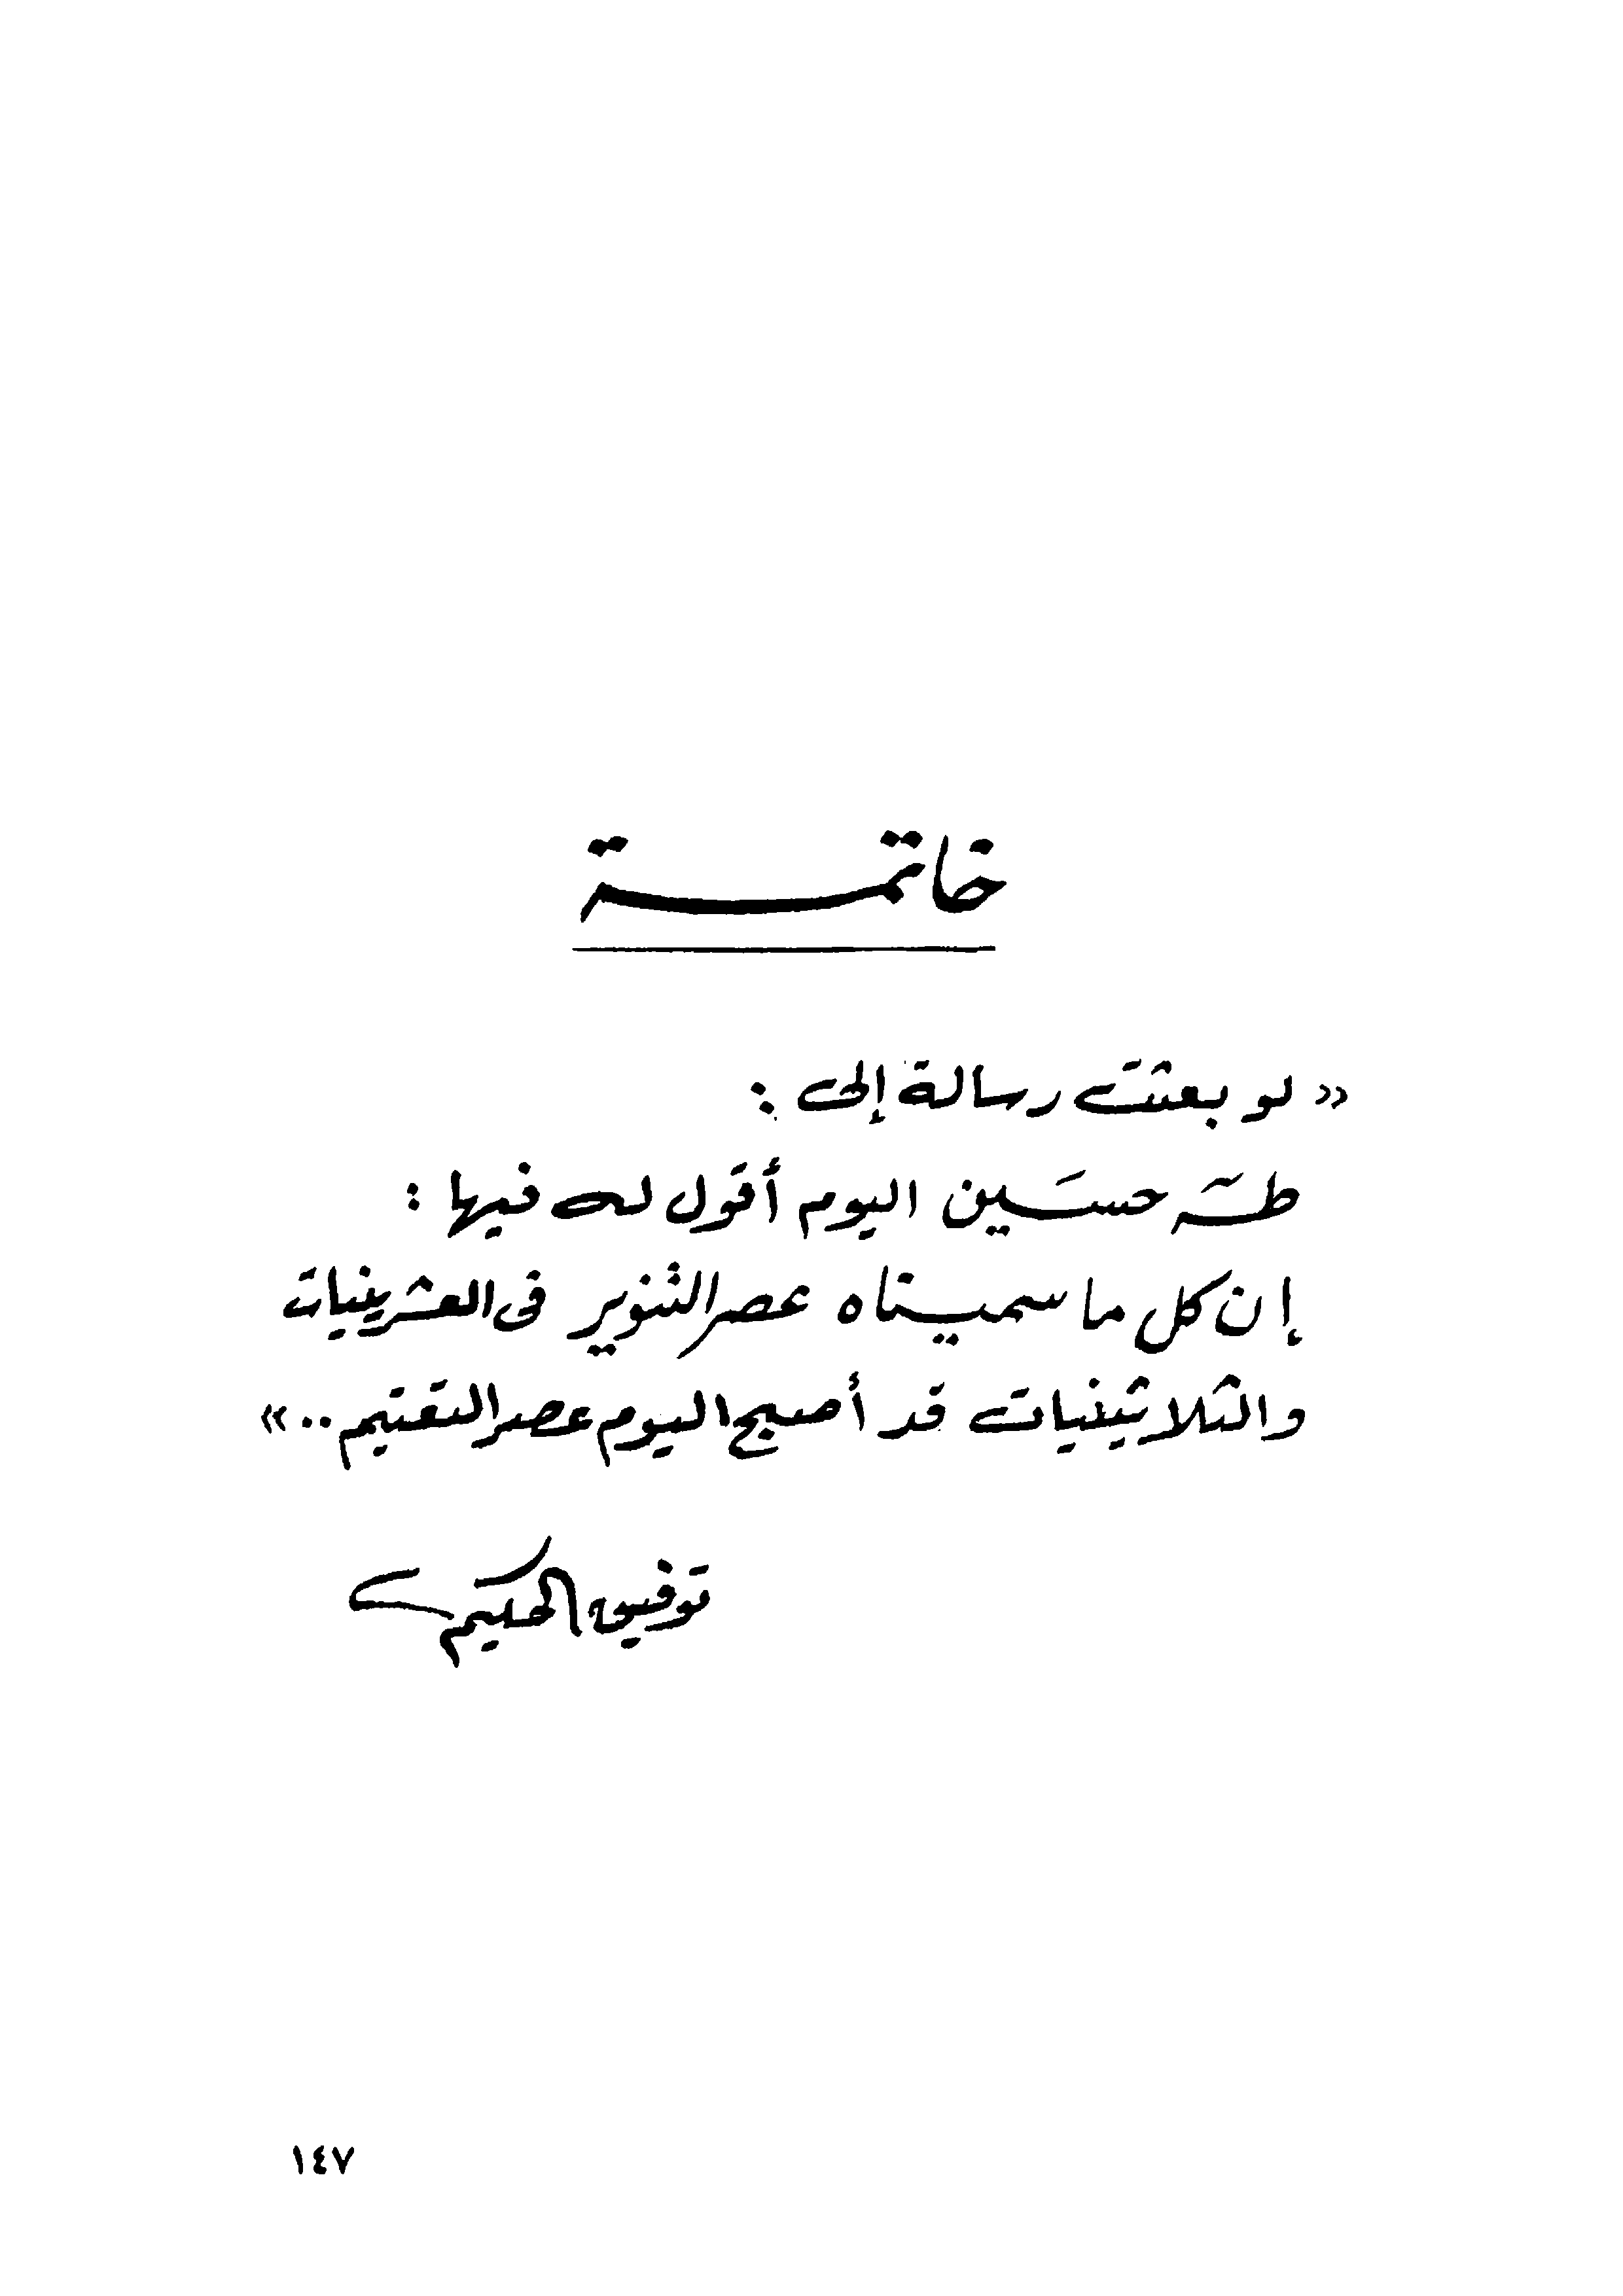 خاتمة
« لو بعثت رسالة إلى :
طه حسين اليوم أقول له فيها :
إن كل ما سميناه عصر التنوير فى العشرينيات
والثلاثينيات قد أصبح اليوم عصر التعتيم .. »
توفيق الحكيم
١٤٧